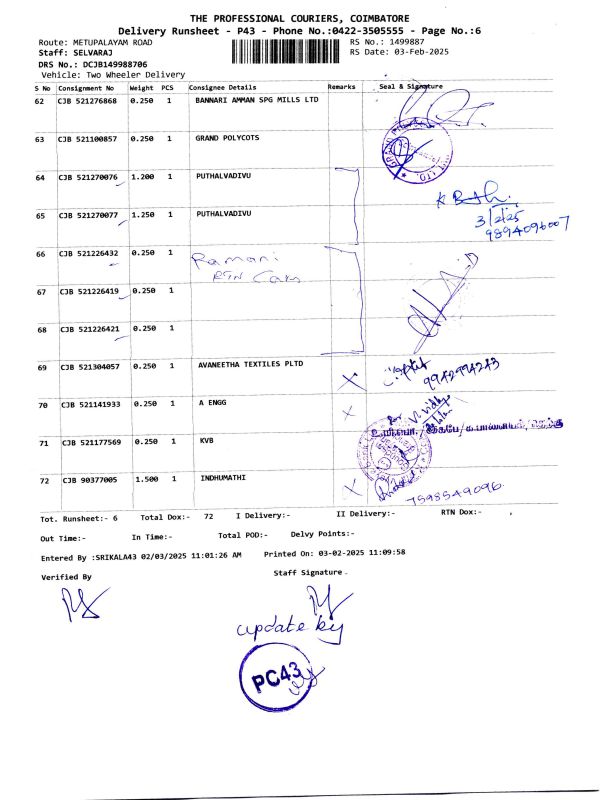 THE PROFESSIONAL COURIERS, COIMBATORE
Delivery Runsheet - P43 - Phone No.:0422-3505555 - Page No.:6
Route: METUPALAYAM ROAD RS No.: 1499887
Staff: SELVARAJ RS Date: 03-Feb-2025
DRS No.: DCJB149988706
Vehicle: Two Wheeler Delivery
S No Consignment No Weight PCS Consignee Details Remarks Seal & Signature
62 CJB 521276868 0.250 1 BANNARI AMMAN SPG MILLS LTD
63 CJB 521100857 0.250 1 GRAND POLYCOTS
64 CJB 521270076 1.200 1 PUTHALVADIVU
65 CJB 521270077 1.250 1 PUTHALVADIVU
3/2/25
9894096007
66 CJB 521226432 0.250 1 Ramani
RTN Cam
67 CJB 521226419 0.250 1
68 CJB 521226421 0.250 1
69 CJB 521304057 0.250 1 AVANEETHA TEXTILES PLTD
9942994243
70 CJB 521141933 0.250 1 A ENGG
71 CJB 521177569 0.250 1 KVB
72 CJB 90377005 1.500 1 INDHUMATHI
7598549096
Tot. Runsheet:- 6 Total Dox:- 72 I Delivery:- II Delivery:- RTN Dox:-
Out Time:- In Time:- Total POD:- Delvy Points:-
Entered By :SRIKALA43 02/03/2025 11:01:26 AM Printed On: 03-02-2025 11:09:58
Verified By Staff Signature
update by
PC43